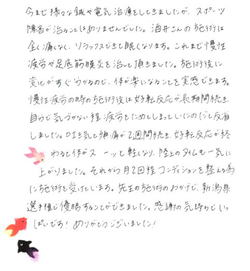 今まで様々な鍼や電気治療をしてきましたが、スポーツ
障害が治ることはありませんでした。酒井さんの施術は
全く痛くなく、リラックスできて眠くなります。これまで慢性
疲労や足底筋膜炎を治して頂きました。施術後に
変化がすぐわかるので、体が楽になることを実感できます。
慢性疲労の時の施術後は好転反応が長期間続き
自分で気づかない程、疲労をためてしまっていたのだと反省
しました。ひどい筋肉痛が2週間続き好転反応が終
わると体がスーッと軽くなり、陸上のタイムも一気に
上がりました。それから月2回程コンディションを整える為
に施術を受けています。先生の施術のおかげで、新潟県
選手権で優勝することができました。感謝の気持ちでいっ
ぱいです! ありがとうございました!